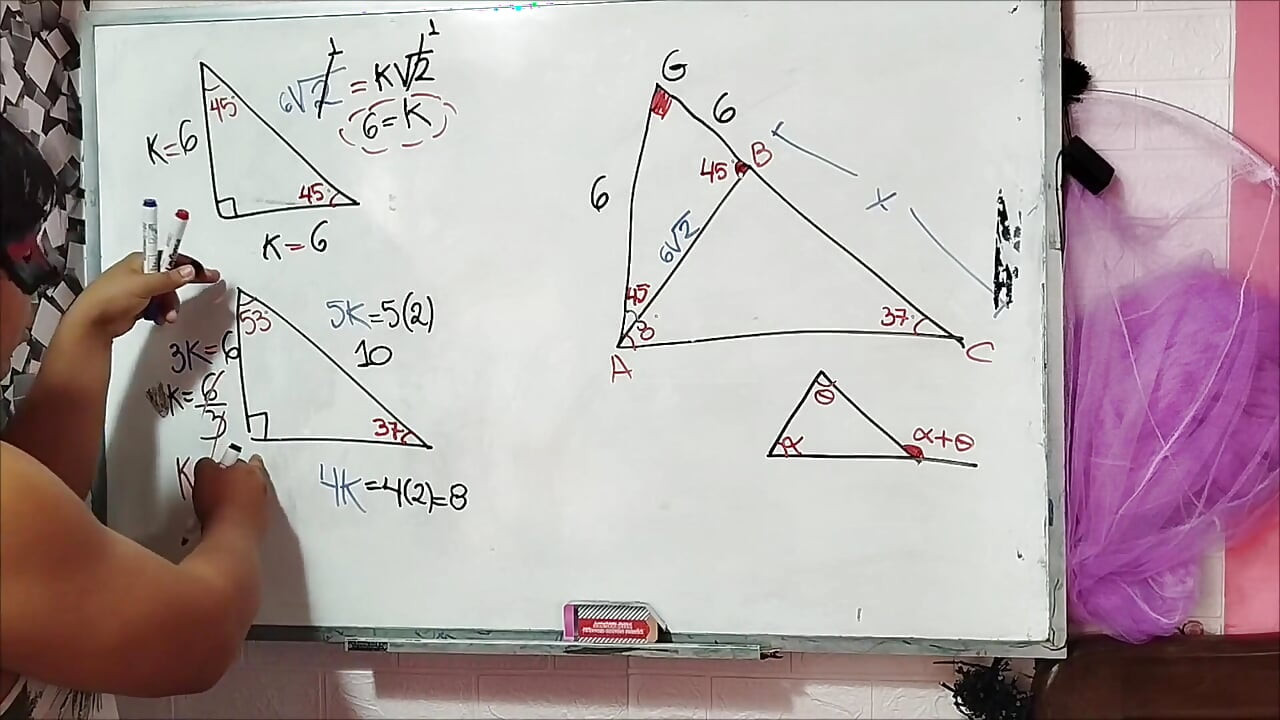 45
K=6
45
K=6
6√2 = K√2
1
1
6=K
53
3K=6
K=6/3
K
37
5K=5(2)
10
4K=4(2)=8
G
6
6
45
B
x
6√2
45
8
37
A
C
θ
α
α+θ